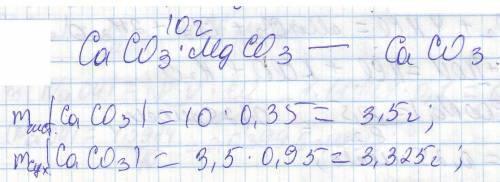 10г
CaCO₃·MgCO₃ — CaCO₃.
mчист.(CaCO₃) = 10 · 0,35 = 3,5г;
mсух(CaCO₃) = 3,5 · 0,95 = 3,325г;